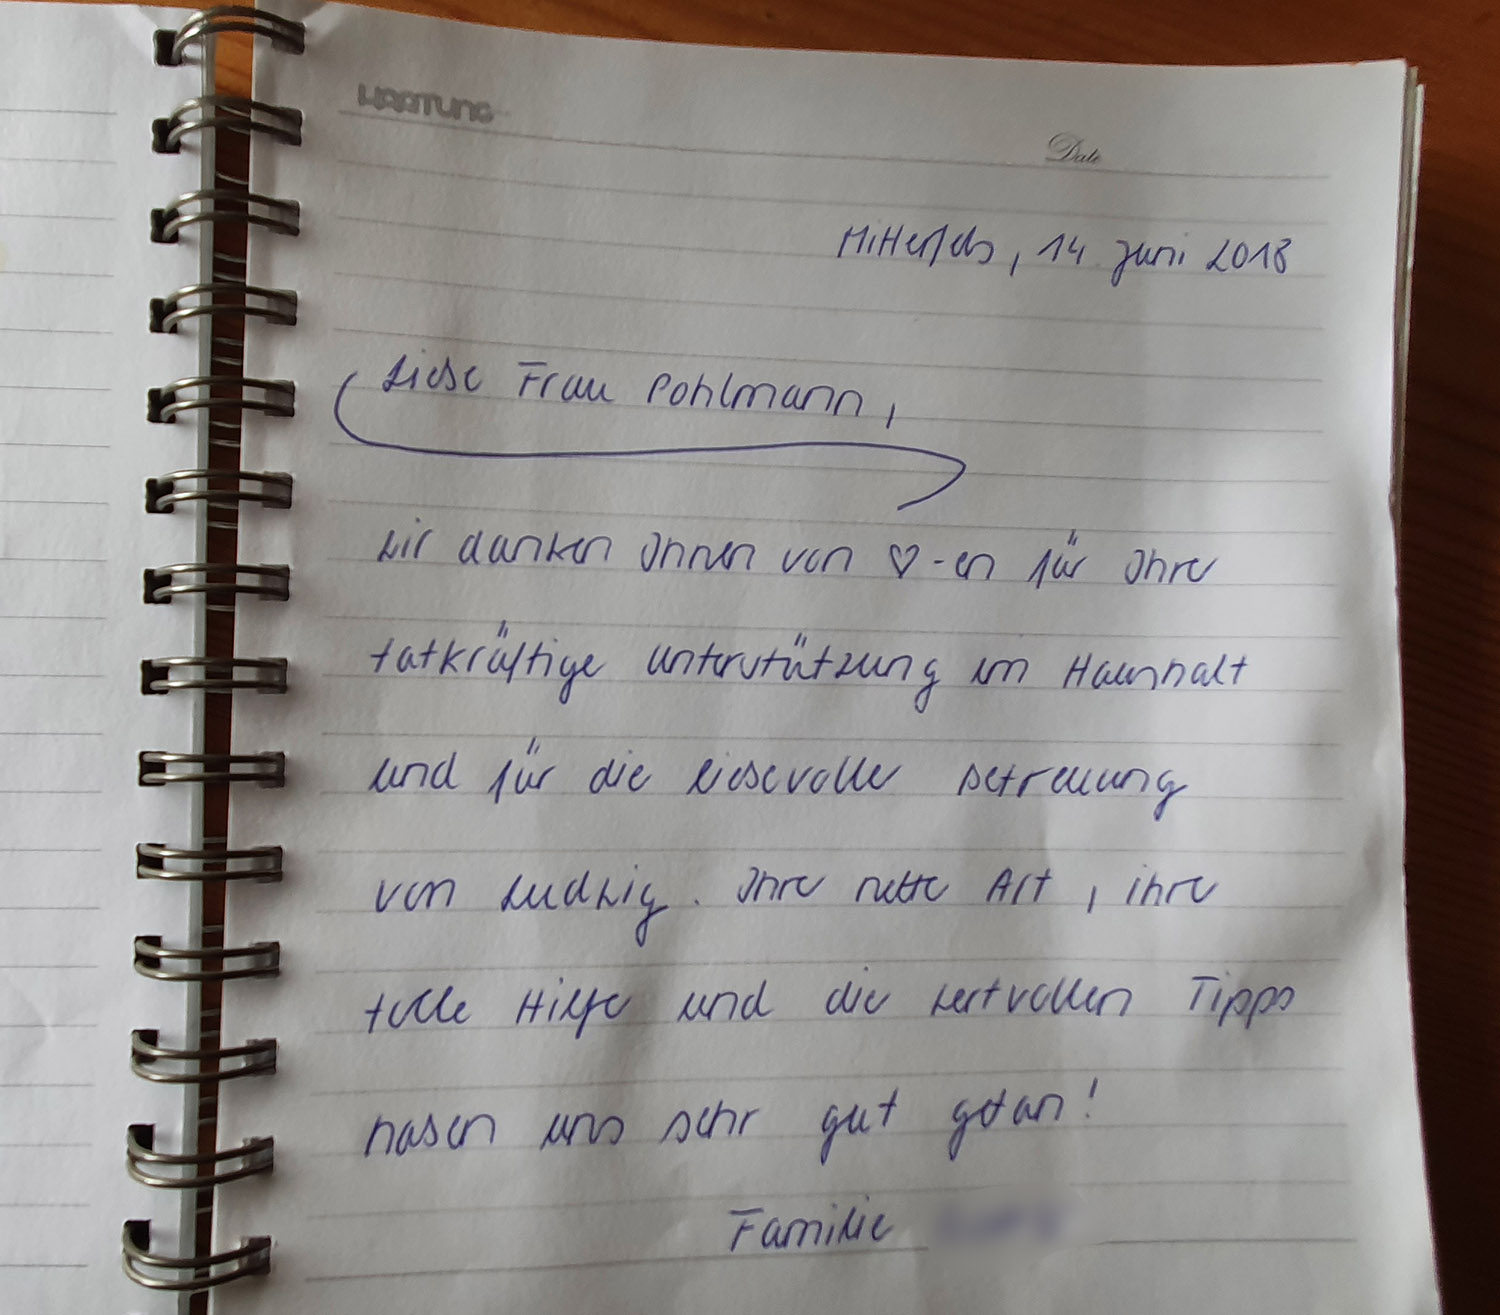 HARTUNG
Date
Mitterfels, 14 Juni 2018
Liebe Frau Pohlmann,
wir danken Ihnen von ♡-en für Ihre
tatkräftige Unterstützung im Haushalt
und für die liebevolle Betreuung
von Ludwig. Ihre nette Art, ihre
tolle Hilfe und die wertvollen Tipps
haben uns sehr gut getan!
Familie